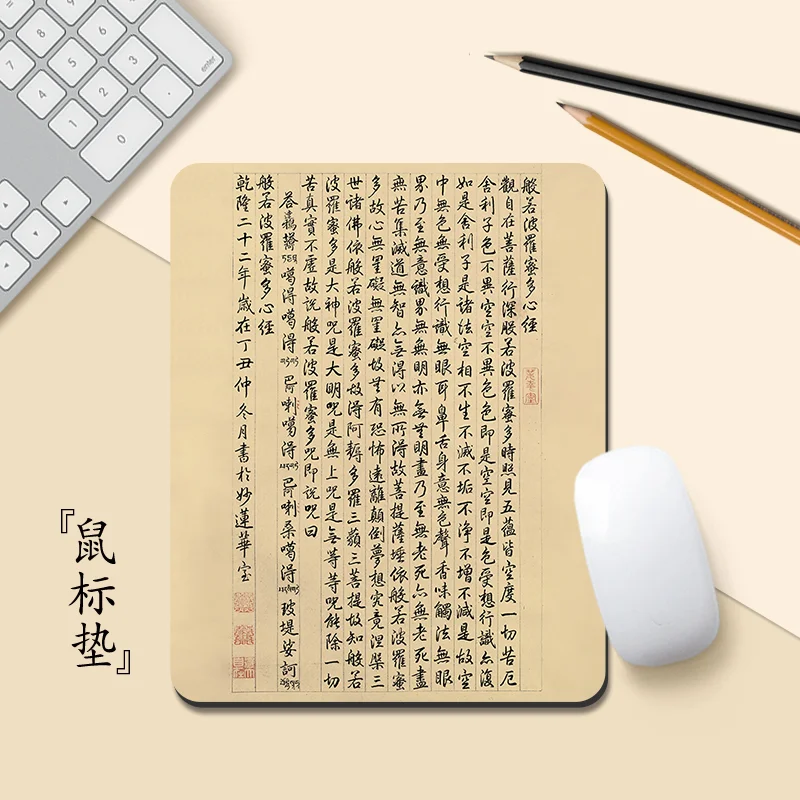 般若波羅蜜多心經
觀自在菩薩行深般若波羅蜜多時照見五蘊皆空度一切苦厄
舍利子色不異空空不異色色即是空空即是色受想行識亦復
如是舍利子是諸法空相不生不滅不垢不净不增不減是故空
中無色無受想行識無眼耳鼻舌身意無色聲香味觸法無眼
界乃至無意識界無無明亦無無明盡乃至無老死亦無老死盡
無苦集滅道無智亦無得以無所得故菩提薩埵依般若波羅蜜
多故心無罣礙無罣礙故無有恐怖遠離顛倒夢想究竟涅槃三
世諸佛依般若波羅蜜多故得阿耨多羅三藐三菩提故知般若
波羅蜜多是大神咒是大明咒是無上咒是無等等咒能除一切
苦真實不虛故說般若波羅蜜多咒即說咒曰
噶得噶得 喇噶得 喇桑噶得 玻堤娑訶
般若波羅蜜多心經
乾隆二十二年歲在丁丑仲冬月書於妙蓮華室
『鼠标垫』
8
9
4
5
6
1
2
3
0
.
enter